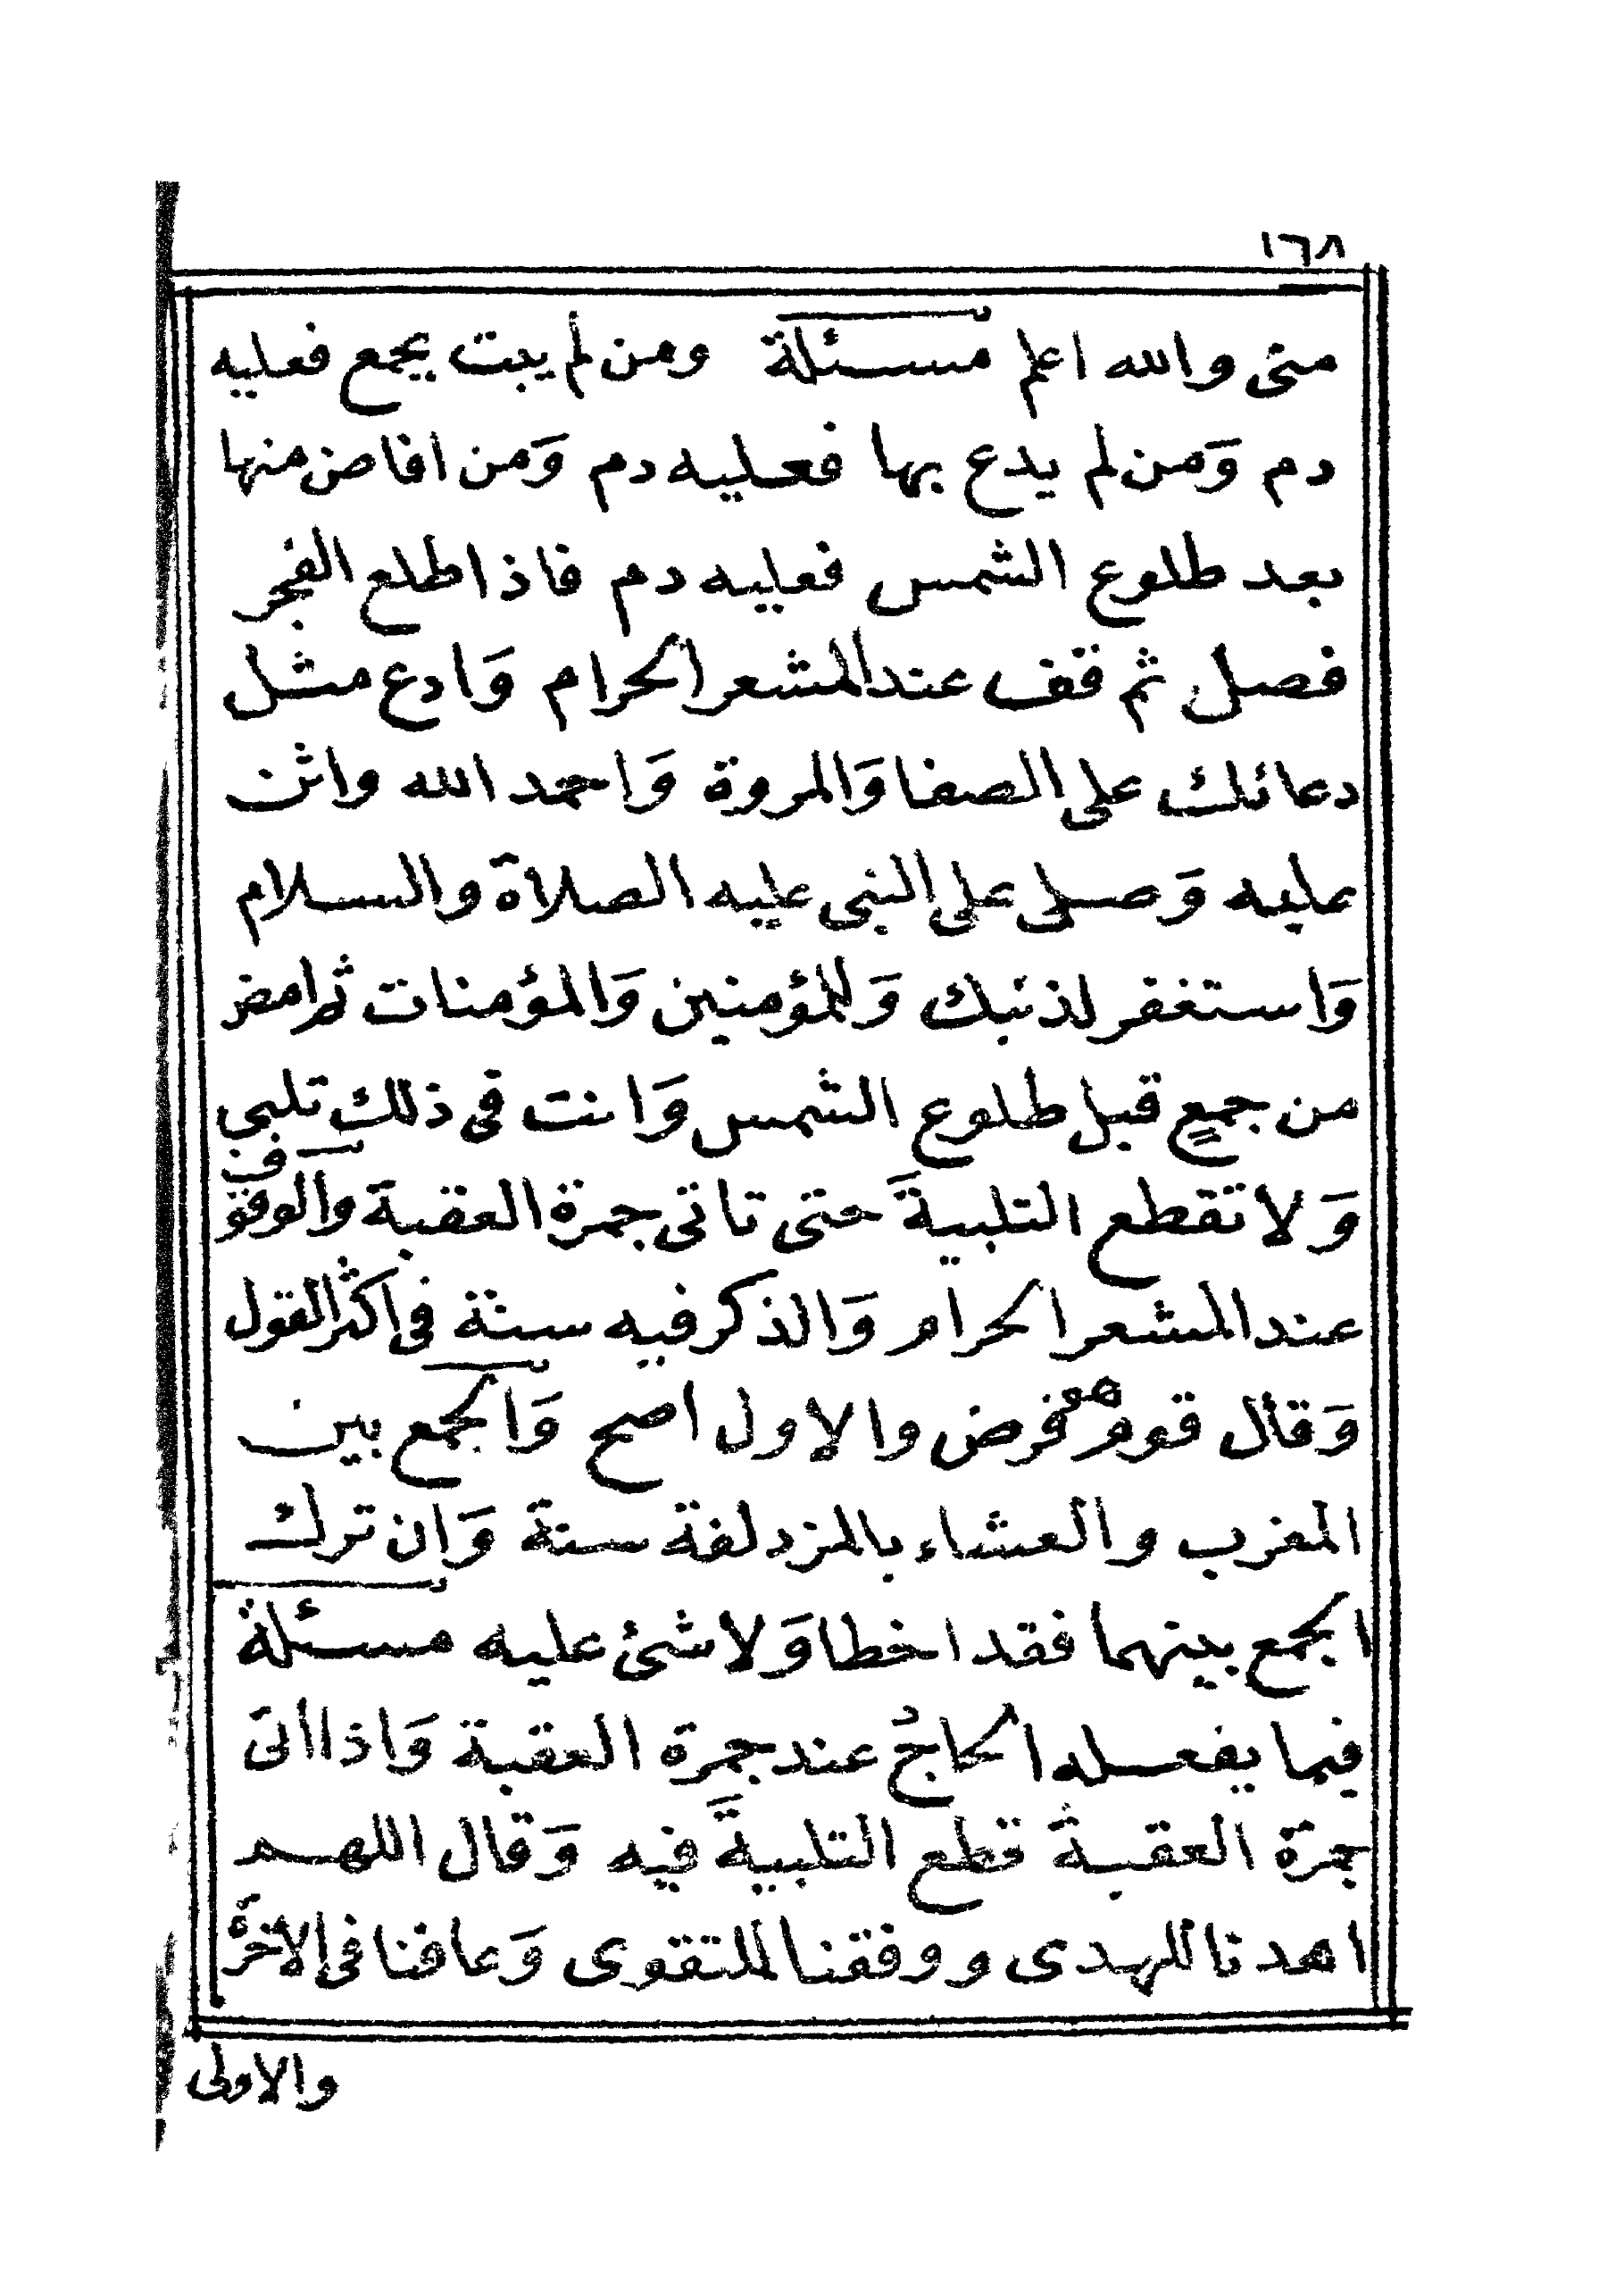 ١٦٨
منى والله اعلم مسئلة ومن لم يبت بجمع فعليه
دم وَمن لم يدع بها فعليه دم وَمن افاض منها
بعد طلوع الشمس فعليه دم فاذا طلع الفجر
فصل ثم قف عند المشعر الحرام وَادع مثل
دعائك على الصفا وَالمروة وَاحمد الله واثن
عليه وَصلى على النبي عليه الصلاة والسلام
وَاستغفر لذنبك وَللمؤمنين وَالمؤمنات ثم امض
من جمعٍ قبل طلوع الشمس وَانت في ذلك تلبي
وَلا تقطع التلبيةَ حتى تاتى جمرة العقبة والوقوف
عند المشعر الحرام وَالذكر فيه سنة في اكثر القول
وَقال قوم هو فرض والاول اصح وَالجمع بين
المغرب والعشاء بالمزدلفة سنة وَان ترك
الجمع بينهما فقد اخطا وَلا شئ عليه مسئلة
فيما يفعله الحاجُ عند جمرة العقبة وَاذا اتى
جمرة العقبة قطع التلبيةَ فيه وَقال اللهم
اهدنا للهدى ووفقنا للتقوى وَعافنا في الاخرة
والاولى